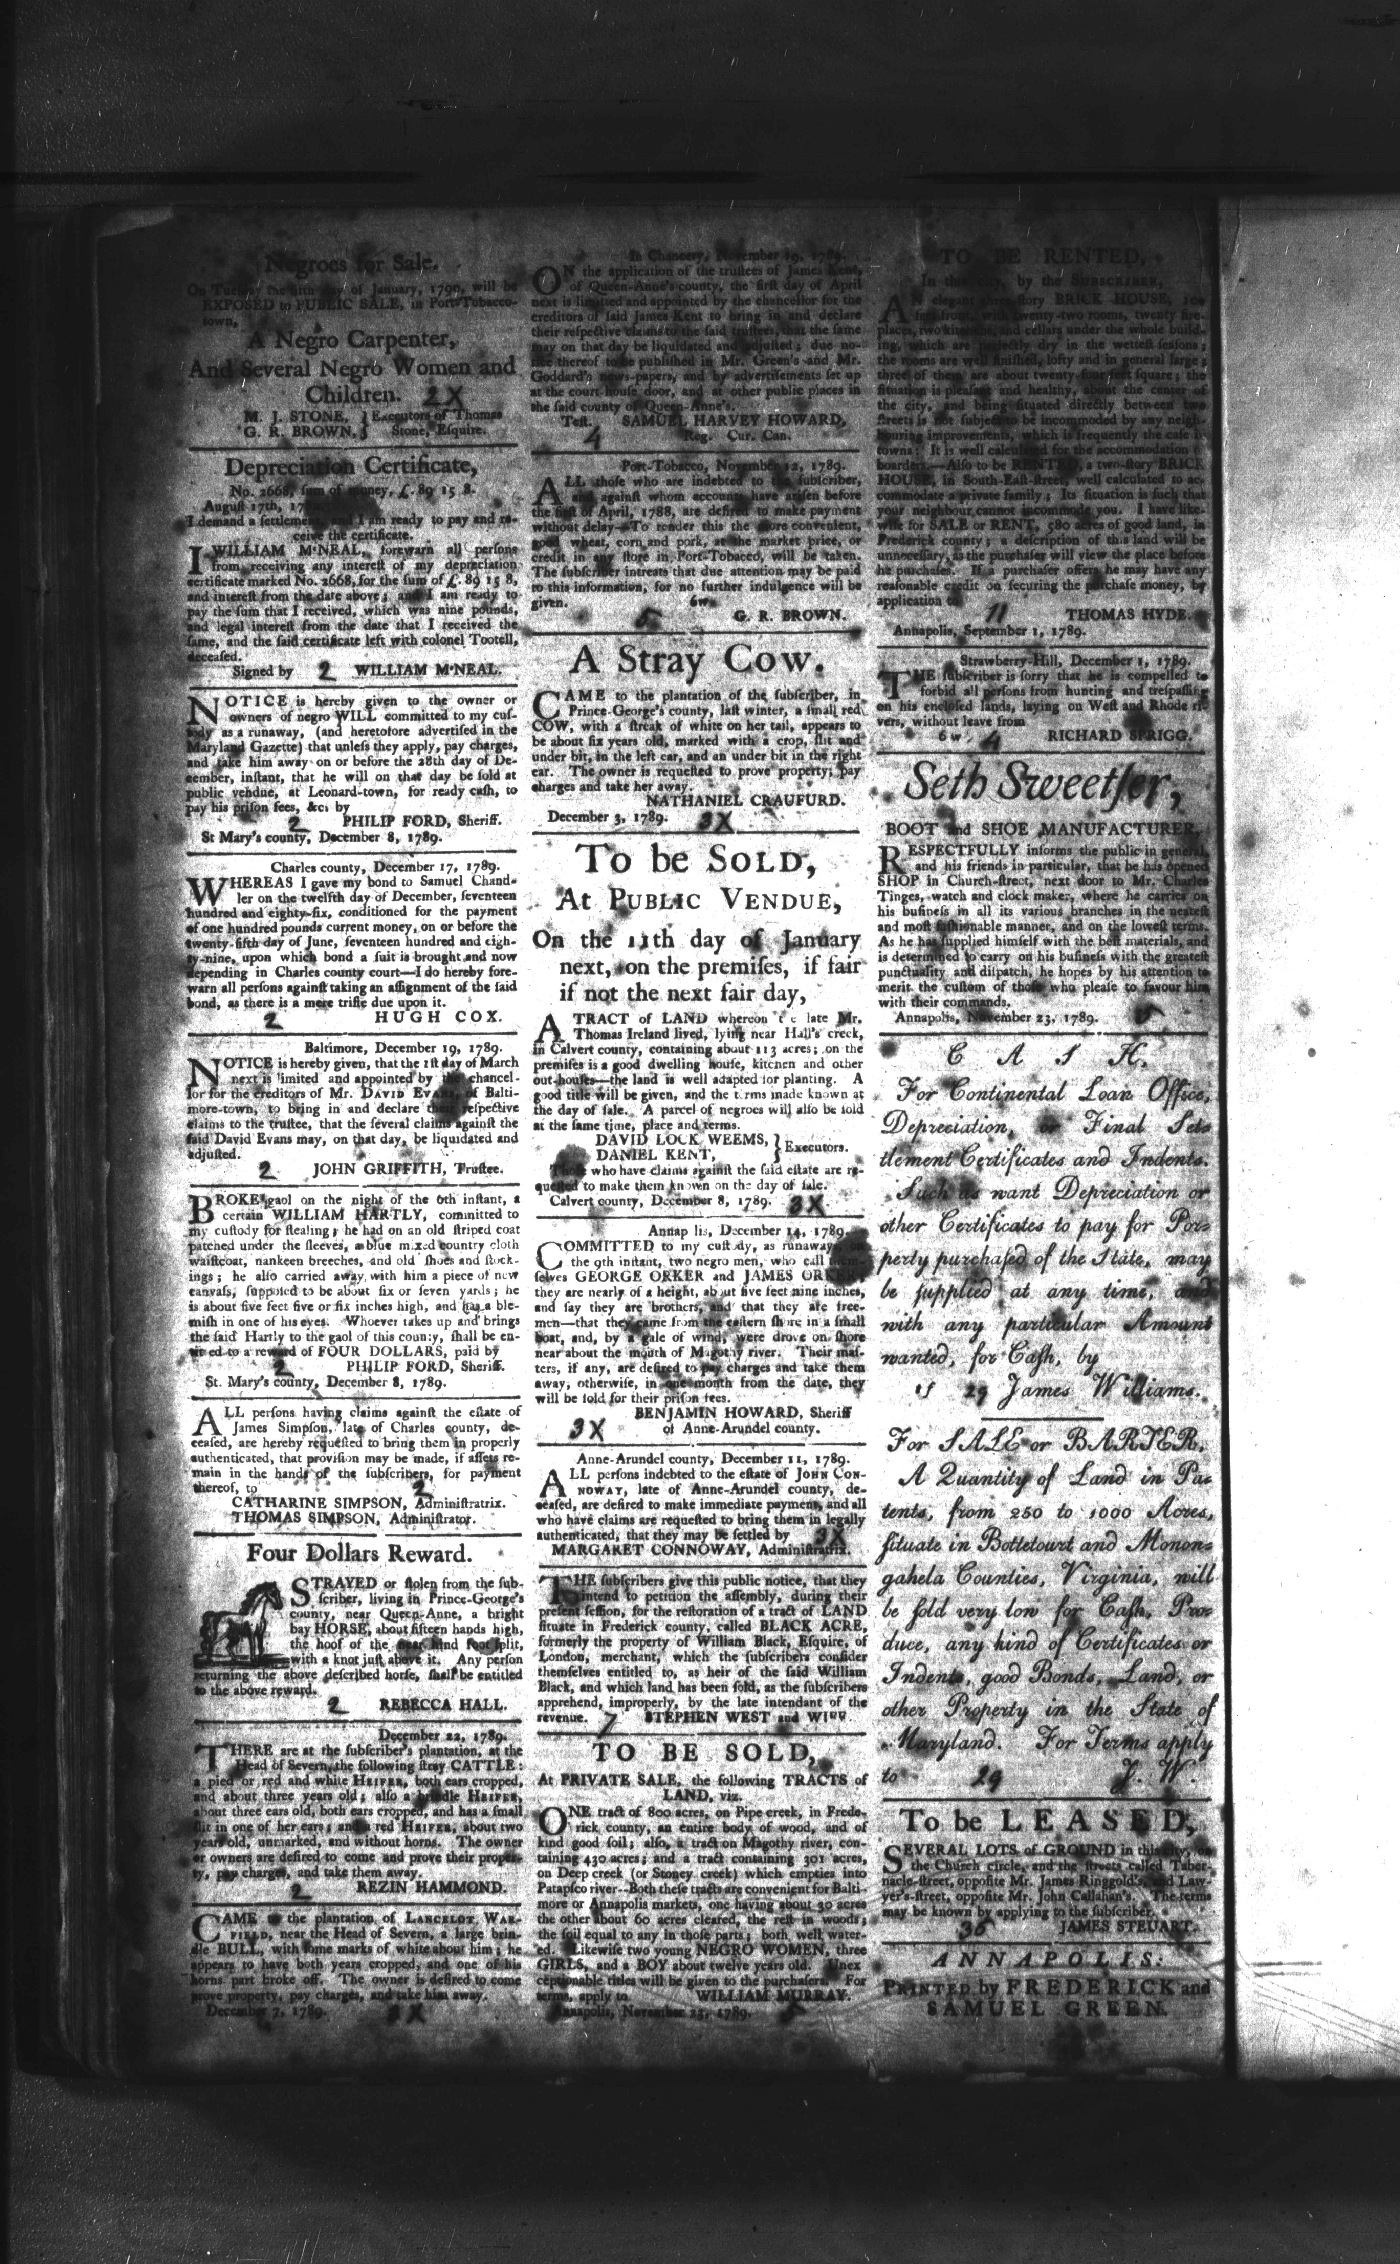 Negroes for Sale.
On Tuesday the day of January, 1790, will be
EXPOSED to PUBLIC SALE, in Port-Tobacco-
town,
A Negro Carpenter,
And Several Negro Women and
Children. 2X
M. J. STONE, } Executors of Thomas
G. R. BROWN, } Stone, Esquire.
Depreciation Certificate,
No. 2668, sum of money, £. 89 15 8.
August 17th,
I demand a settlement, and I am ready to pay and re-
ceive the certificate.
I WILLIAM M'NEAL, forewarn all persons
from receiving any interest of my depreciation
certificate marked No. 2668, for the sum of £. 89 15 8,
and interest from the date above; and I am ready to
pay the sum that I received, which was nine pounds,
and legal interest from the date that I received the
same, and the said certificate left with colonel Tootell,
deceased.
Signed by 2 WILLIAM M'NEAL.
NOTICE is hereby given to the owner or
owners of negro WILL committed to my cus-
tody as a runaway, (and heretofore advertised in the
Maryland Gazette) that unless they apply, pay charges,
and take him away on or before the 28th day of De-
cember, instant, that he will on that day be sold at
public vendue, at Leonard-town, for ready cash, to
pay his prison fees, &c. by
2 PHILIP FORD, Sheriff.
St Mary's county, December 8, 1789.
Charles county, December 17, 1789.
WHEREAS I gave my bond to Samuel Chand-
ler on the twelfth day of December, seventeen
hundred and eighty-six, conditioned for the payment
of one hundred pounds current money, on or before the
twenty-fifth day of June, seventeen hundred and eigh-
ty-nine, upon which bond a suit is brought and now
depending in Charles county court—I do hereby fore-
warn all persons against taking an assignment of the said
bond, as there is a mere trifle due upon it.
2 HUGH COX.
Baltimore, December 19, 1789.
NOTICE is hereby given, that the 1st day of March
next is limited and appointed by the chancel-
lor for the creditors of Mr. DAVID EVANS, of Balti-
more-town, to bring in and declare their respective
claims to the trustee, that the several claims against the
said David Evans may, on that day, be liquidated and
adjusted.
2 JOHN GRIFFITH, Trustee.
BROKE gaol on the night of the 6th instant, a
certain WILLIAM HARTLY, committed to
my custody for stealing; he had on an old striped coat
patched under the sleeves, a blue mixed country cloth
waistcoat, nankeen breeches, and old shoes and stock-
ings; he also carried away with him a piece of new
canvass, supposed to be about six or seven yards; he
is about five feet five or six inches high, and has a ble-
mish in one of his eyes. Whoever takes up and brings
the said Hartly to the gaol of this county, shall be en-
titled to a reward of FOUR DOLLARS, paid by
2 PHILIP FORD, Sheriff.
St. Mary's county, December 8, 1789.
ALL persons having claims against the estate of
James Simpson, late of Charles county, de-
ceased, are hereby requested to bring them in properly
authenticated, that provision may be made, if assets re-
main in the hands of the subscribers, for payment
thereof, to 2
CATHARINE SIMPSON, Administratrix.
THOMAS SIMPSON, Administrator.
Four Dollars Reward.
STRAYED or stolen from the sub-
scriber, living in Prince-George's
county, near Queen-Anne, a bright
bay HORSE, about fifteen hands high,
the hoof of the near hind foot split,
with a knot just above it. Any person
returning the above described horse, shall be entitled
to the above reward.
2 REBECCA HALL.
December 22, 1789.
THERE are at the subscriber's plantation, at the
Head of Severn, the following stray CATTLE:
a pied or red and white HEIFER, both ears cropped,
and about three years old; also a brindle HEIFER,
about three ears old, both ears cropped, and has a small
slit in one of her ears; and a red HEIFER, about two
years old, unmarked, and without horns. The owner
or owners are desired to come and prove their proper-
ty, pay charges, and take them away.
2 REZIN HAMMOND.
CAME to the plantation of LANCELOT WAR-
FIELD, near the Head of Severn, a large brin-
dle BULL, with some marks of white about him; he
appears to have both years cropped, and one of his
horns part broke off. The owner is desired to come
prove property, pay charges, and take him away.
December 7, 1789. X
In Chancery, November 19, 1789.
ON the application of the trustees of James Kent,
of Queen-Anne's county, the first day of April
next is limitted and appointed by the chancellor for the
creditors of said James Kent to bring in and declare
their respective claims to the said trustees, that the same
may on that day be liquidated and adjusted; due no-
tice thereof to be published in Mr. Green's and Mr.
Goddard's news-papers, and by advertisements set up
at the court-house door, and at other public places in
the said county of Queen-Anne's.
Test. SAMUEL HARVEY HOWARD,
4 Reg. Cur. Can.
Port-Tobacco, November 12, 1789.
ALL those who are indebted to the subscriber,
and against whom accounts have arisen before
the first of April, 1788, are desired to make payment
without delay—To render this the more convenient,
good wheat, corn and pork, at the market price, or
credit in any store in Port-Tobacco, will be taken.
The subscriber intreats that due attention may be paid
to this information, for no further indulgence will be
given. 6w
5 G. R. BROWN.
A Stray Cow.
CAME to the plantation of the subscriber, in
Prince-George's county, last winter, a small red
COW, with a streak of white on her tail, appears to
be about six years old, marked with a crop, slit and
under bit, in the left ear, and an under bit in the right
ear. The owner is requested to prove property, pay
charges and take her away.
NATHANIEL CRAUFURD.
December 3, 1789. 3X
To be SOLD,
At PUBLIC VENDUE,
On the 11th day of January
next, on the premises, if fair
if not the next fair day,
A TRACT of LAND whereon the late Mr.
Thomas Ireland lived, lying near Hall's creek,
in Calvert county, containing about 113 acres; on the
premises is a good dwelling house, kitchen and other
out-houses—the land is well adapted for planting. A
good title will be given, and the terms made known at
the day of sale. A parcel of negroes will also be sold
at the same time, place and terms.
DAVID LOCK WEEMS, } Executors.
DANIEL KENT, }
Those who have claims against the said estate are re-
quested to make them known on the day of sale.
Calvert county, December 8, 1789. 3X
Annapolis, December 14, 1789.
COMMITTED to my custody, as runaways, on
the 9th instant, two negro men, who call them-
selves GEORGE ORKER and JAMES ORKER,
they are nearly of a height, about five feet nine inches,
and say they are brothers, and that they are free-
men—that they came from the eastern shore in a small
boat, and, by a gale of wind, were drove on shore
near about the mouth of Magothy river. Their mas-
ters, if any, are desired to pay charges and take them
away, otherwise, in one month from the date, they
will be sold for their prison fees.
BENJAMIN HOWARD, Sheriff
3X of Anne-Arundel county.
Anne-Arundel county, December 11, 1789.
ALL persons indebted to the estate of JOHN CON-
NOWAY, late of Anne-Arundel county, de-
ceased, are desired to make immediate payment, and all
who have claims are requested to bring them in legally
authenticated, that they may be settled by 3X
MARGARET CONNOWAY, Administratrix.
THE subscribers give this public notice, that they
intend to petition the assembly, during their
present session, for the restoration of a tract of LAND
situate in Frederick county, called BLACK ACRE,
formerly the property of William Black, Esquire, of
London, merchant, which the subscribers consider
themselves entitled to, as heir of the said William
Black, and which land has been sold, as the subscribers
apprehend, improperly, by the late intendant of the
revenue. 7 STEPHEN WEST and WIFE.
TO BE SOLD,
At PRIVATE SALE, the following TRACTS of
LAND, viz.
ONE tract of 800 acres, on Pipe creek, in Frede-
rick county, an entire body of wood, and of
kind good soil; also, a tract on Magothy river, con-
taining 430 acres; and a tract containing 301 acres,
on Deep creek (or Stoney creek) which empties into
Patapsco river--Both these tracts are convenient for Balti-
more or Annapolis markets, one having about 30 acres
the other about 60 acres cleared, the rest in woods;
the soil equal to any in those parts; both well water-
ed. Likewise two young NEGRO WOMEN, three
GIRLS, and a BOY about twelve years old. Unex
ceptionable titles will be given to the purchasers. For
terms, apply to WILLIAM MURRAY.
Annapolis, November 25, 1789.
TO BE RENTED,
In this city, by the SUBSCRIBER,
AN elegant three-story BRICK HOUSE, 100
feet front, with twenty-two rooms, twenty fire-
places, two kitchens, and cellars under the whole build-
ing, which are perfectly dry in the wettest seasons;
the rooms are well finished, lofty and in general large;
three of them are about twenty-four feet square; the
situation is pleasant and healthy, about the center of
the city, and being situated directly between two
streets is not subject to be incommoded by any neigh-
bouring improvements, which is frequently the case in
towns: It is well calculated for the accommodation o
boarders.—Also to be RENTED, a two-story BRICK
HOUSE, in South-East-street, well calculated to ac-
commodate a private family; Its situation is such that
your neighbour cannot incommode you. I have like-
wise for SALE or RENT, 580 acres of good land, in
Frederick county; a description of this land will be
unnecessary, as the purchaser will view the place before
he purchases. If a purchaser offers he may have any
reasonable credit on securing the purchase money, by
application to
11 THOMAS HYDE.
Annapolis, September 1, 1789.
Strawberry-Hill, December 1, 1789.
THE subscriber is sorry that he is compelled to
forbid all persons from hunting and trespassing
on his enclosed lands, laying on West and Rhode ri-
vers, without leave from
6 w 4 RICHARD SPRIGG.
Seth Sweetser,
BOOT and SHOE MANUFACTURER,
RESPECTFULLY informs the public in general,
and his friends in particular, that he has opened
SHOP in Church-street, next door to Mr. Charles
Tinges, watch and clock maker, where he carries on
his business in all its various branches in the neatest
and most fashionable manner, and on the lowest terms.
As he has supplied himself with the best materials, and
is determined to carry on his business with the greatest
punctuality and dispatch, he hopes by his attention to
merit the custom of those who please to favour him
with their commands.
Annapolis, November 23, 1789. 5
C A S H,
For Continental Loan Office,
Depreciation, or Final Set-
tlement Certificates and Indents.
Such as want Depreciation or
other Certificates to pay for Por-
perty purchased of the State, may
be supplied at any time, and
with any particular Amount
wanted, for Cash, by
tf 29 James Williams.
For SALE or BARTER,
A Quantity of Land in Pa-
tents, from 250 to 1000 Acres,
situate in Bottetourt and Monon-
gahela Counties, Virginia, will
be sold very low for Cash, Pro-
duce, any kind of Certificates or
Indents, good Bonds, Land, or
other Property in the State of
Maryland. For Terms apply
to 29 J. W.
To be LEASED,
SEVERAL LOTS of GROUND in this city, on
the Church circle, and the streets called Taber-
nacle-street, opposite Mr. James Ringgold's, and Law-
yer's-street, opposite Mr. John Callahan's. The terms
may be known by applying to the subscriber.
35 JAMES STEUART.
ANNAPOLIS:
PRINTED by FREDERICK and
SAMUEL GREEN.